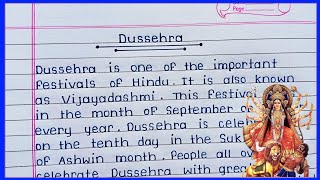 Page
Dussehra
Dussehra is one of the important
festivals of Hindu. It is also known
as Vijayadashmi. This festival
in the month of September o
every year. Dussehra is celeb
on the tenth day in the Suk
of Ashwin month. People all ov
celebrate Dussehra with grea